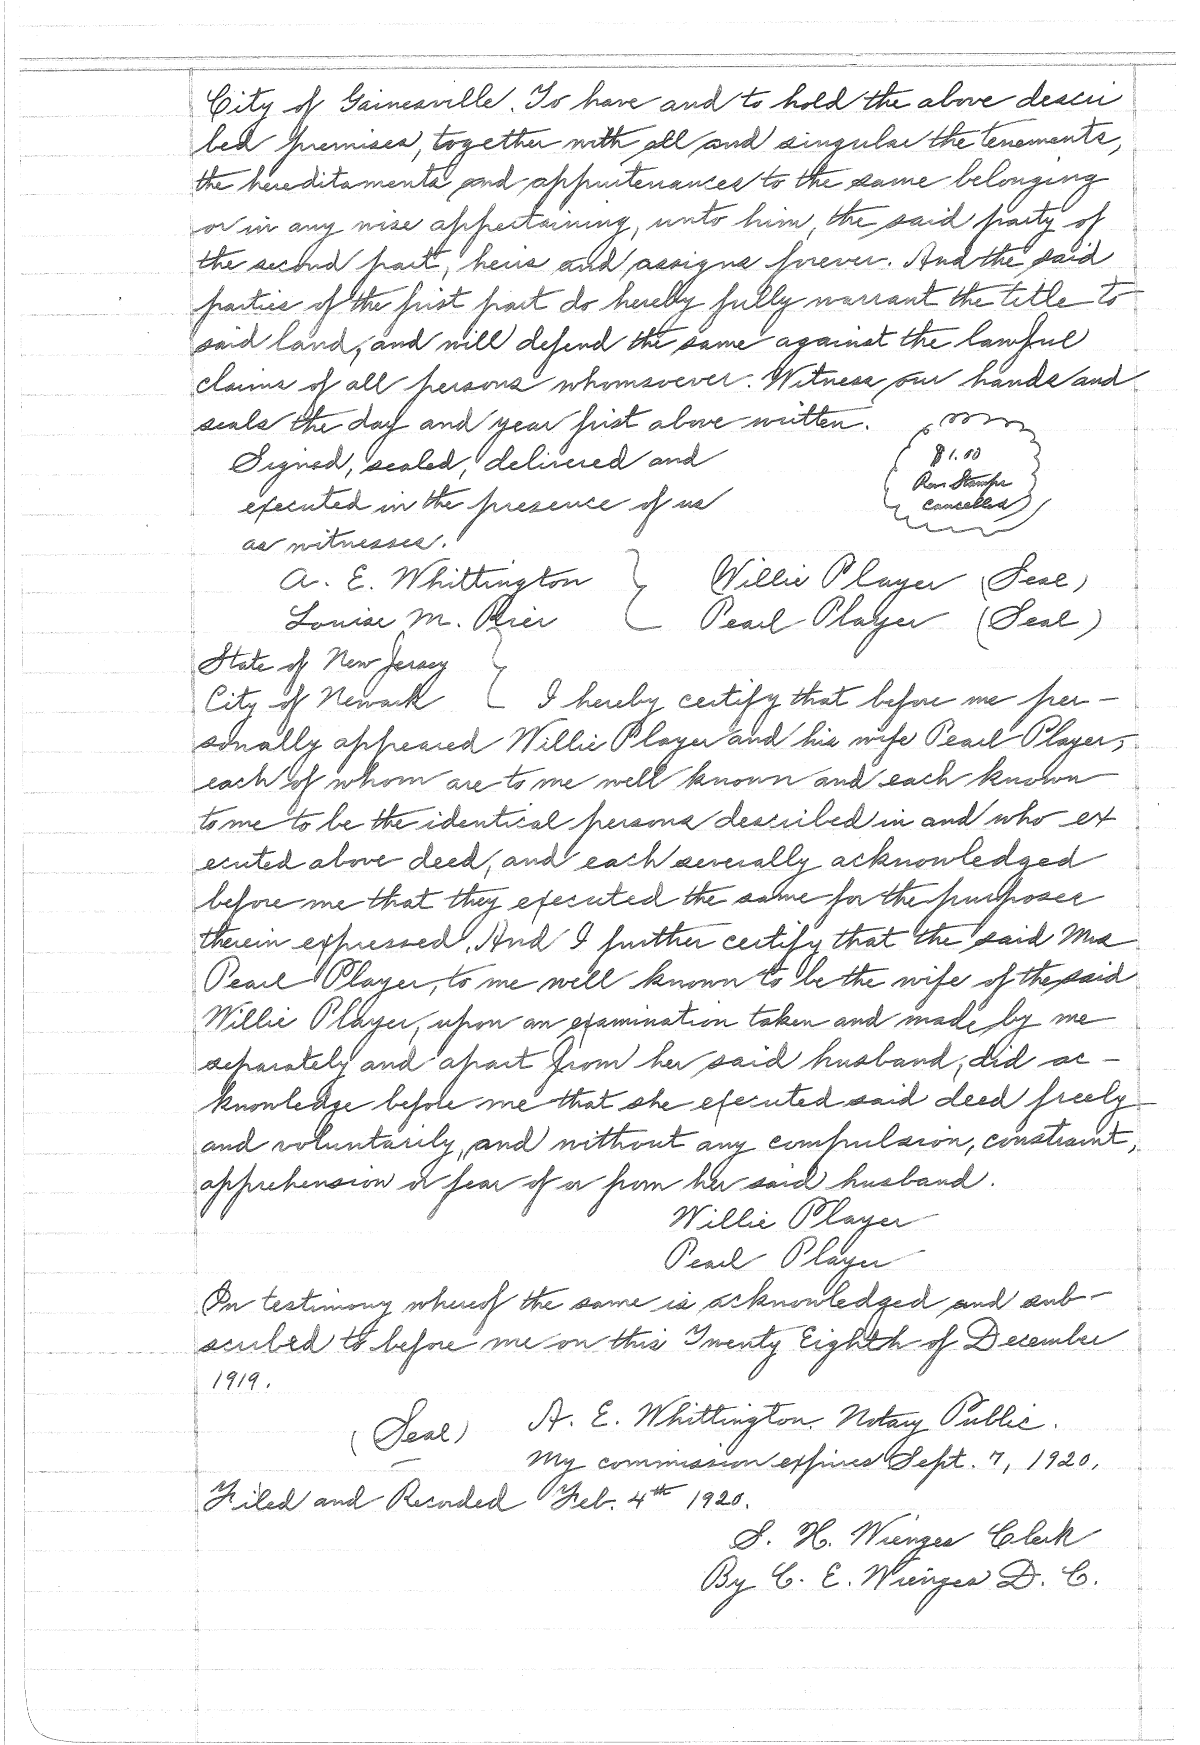 City of Gainesville. To have and to hold the above descri
bed premises, together with all and singular the tenements,
the hereditaments and appurtenances to the same belonging
or in any wise appertaining, unto him, the said party of
the second part, heirs and assigns forever. And the said
parties of the first part do hereby fully warrant the title to
said land, and will defend the same against the lawful
claims of all persons whomsoever. Witness our hands and
seals the day and year first above written.
$1.00
Rev Stamps
Cancelled
Signed, sealed, delivered and
executed in the presence of us
as witnesses.
A. E. Whittington } Willie Player (Seal)
Louise M. Prier Pearl Player (Seal)
State of New Jersey }
City of Newark I hereby certify that before me per-
sonally appeared Willie Player and his wife Pearl Player,
each of whom are to me well known and each known
to me to be the identical persons described in and who ex
ecuted above deed, and each severally acknowledged
before me that they executed the same for the purposes
therein expressed. And I further certify that the said Mrs
Pearl Player, to me well known to be the wife of the said
Willie Player, upon an examination taken and made by me
separately and apart from her said husband, did ac-
knowledge before me that she executed said deed freely
and voluntarily, and without any compulsion, constraint,
apprehension or fear of or from her said husband.
Willie Player
Pearl Player
In testimony whereof the same is acknowledged and sub-
scribed to before me on this Twenty Eighth of December
1919.
(Seal) A. E. Whittington. Notary Public.
My commission expires Sept. 7, 1920.
Filed and Recorded Feb. 4th 1920.
S. H. Wienges Clerk
By C. E. Wienges D. C.